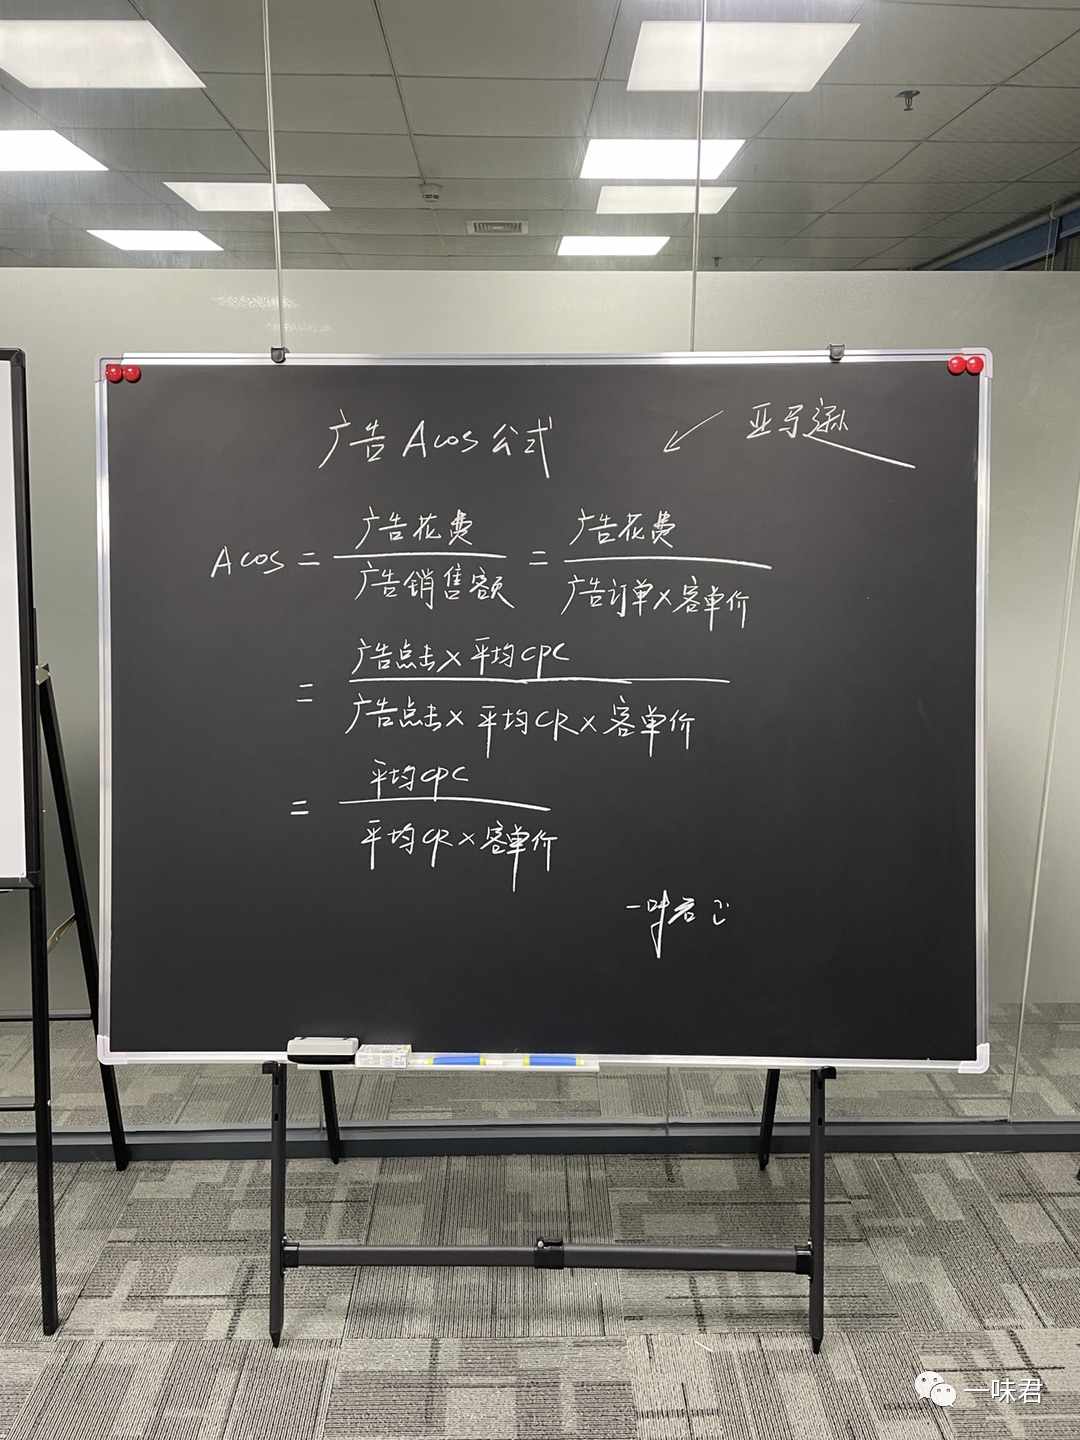 广告Acos公式
亚马逊
Acos = 广告花费 / 广告销售额 = 广告花费 / 广告订单×客单价
= 广告点击×平均CPC / 广告点击×平均CR×客单价
= 平均CPC / 平均CR×客单价
一味君
一味君